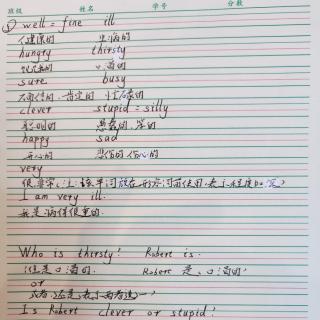 班级 姓名 学号 分数
① well = fine ill
健康的 生病的
hungry thirsty
饥饿的 口渴的
sure busy
肯定的 忙碌的
clever stupid = silly
聪明的 愚蠢的, 笨的
happy sad
开心的 悲伤的 伤心的
very
很, 非常 (注: 该单词放在形容词前使用, 表示程度
I am very ill.
我是病得很重的.
Who is thirsty? Robert is.
谁是口渴的. Robert 是口渴的
or
或者, 还是, 表示两者选一
Is Robert clever or stupid?